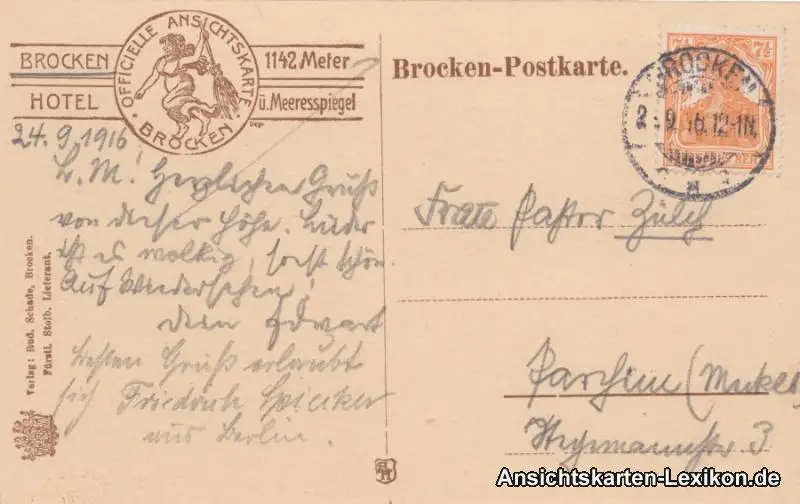 BROCKEN
HOTEL
OFFICIELLE ANSICHTSKARTE
BROCKEN
1142 Meter
ü. Meeresspiegel
Brocken-Postkarte.
7½ 7½
BROCKEN
9. 16. 12-1N.
24. 9. 1916
L. M! Herzlichen Gruß
von dieser Höhe. Leider
ist es wolkig, sonst schön.
Auf Wiedersehen!
Dein Edwart
Besten Gruß erlaubt
sich Friedrich Spiecker
aus Berlin.
Frau Pastor Zülch
Parchim (Meckl.
3
Verlag: Rud. Schade, Brocken.
Fürstl. Stolb. Lieferant.
Ansichtskarten-Lexikon.de